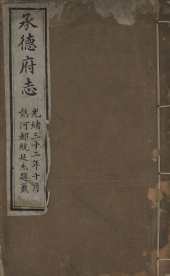 承德府志
光緒三十二年十月
熱河都統廷杰題籤